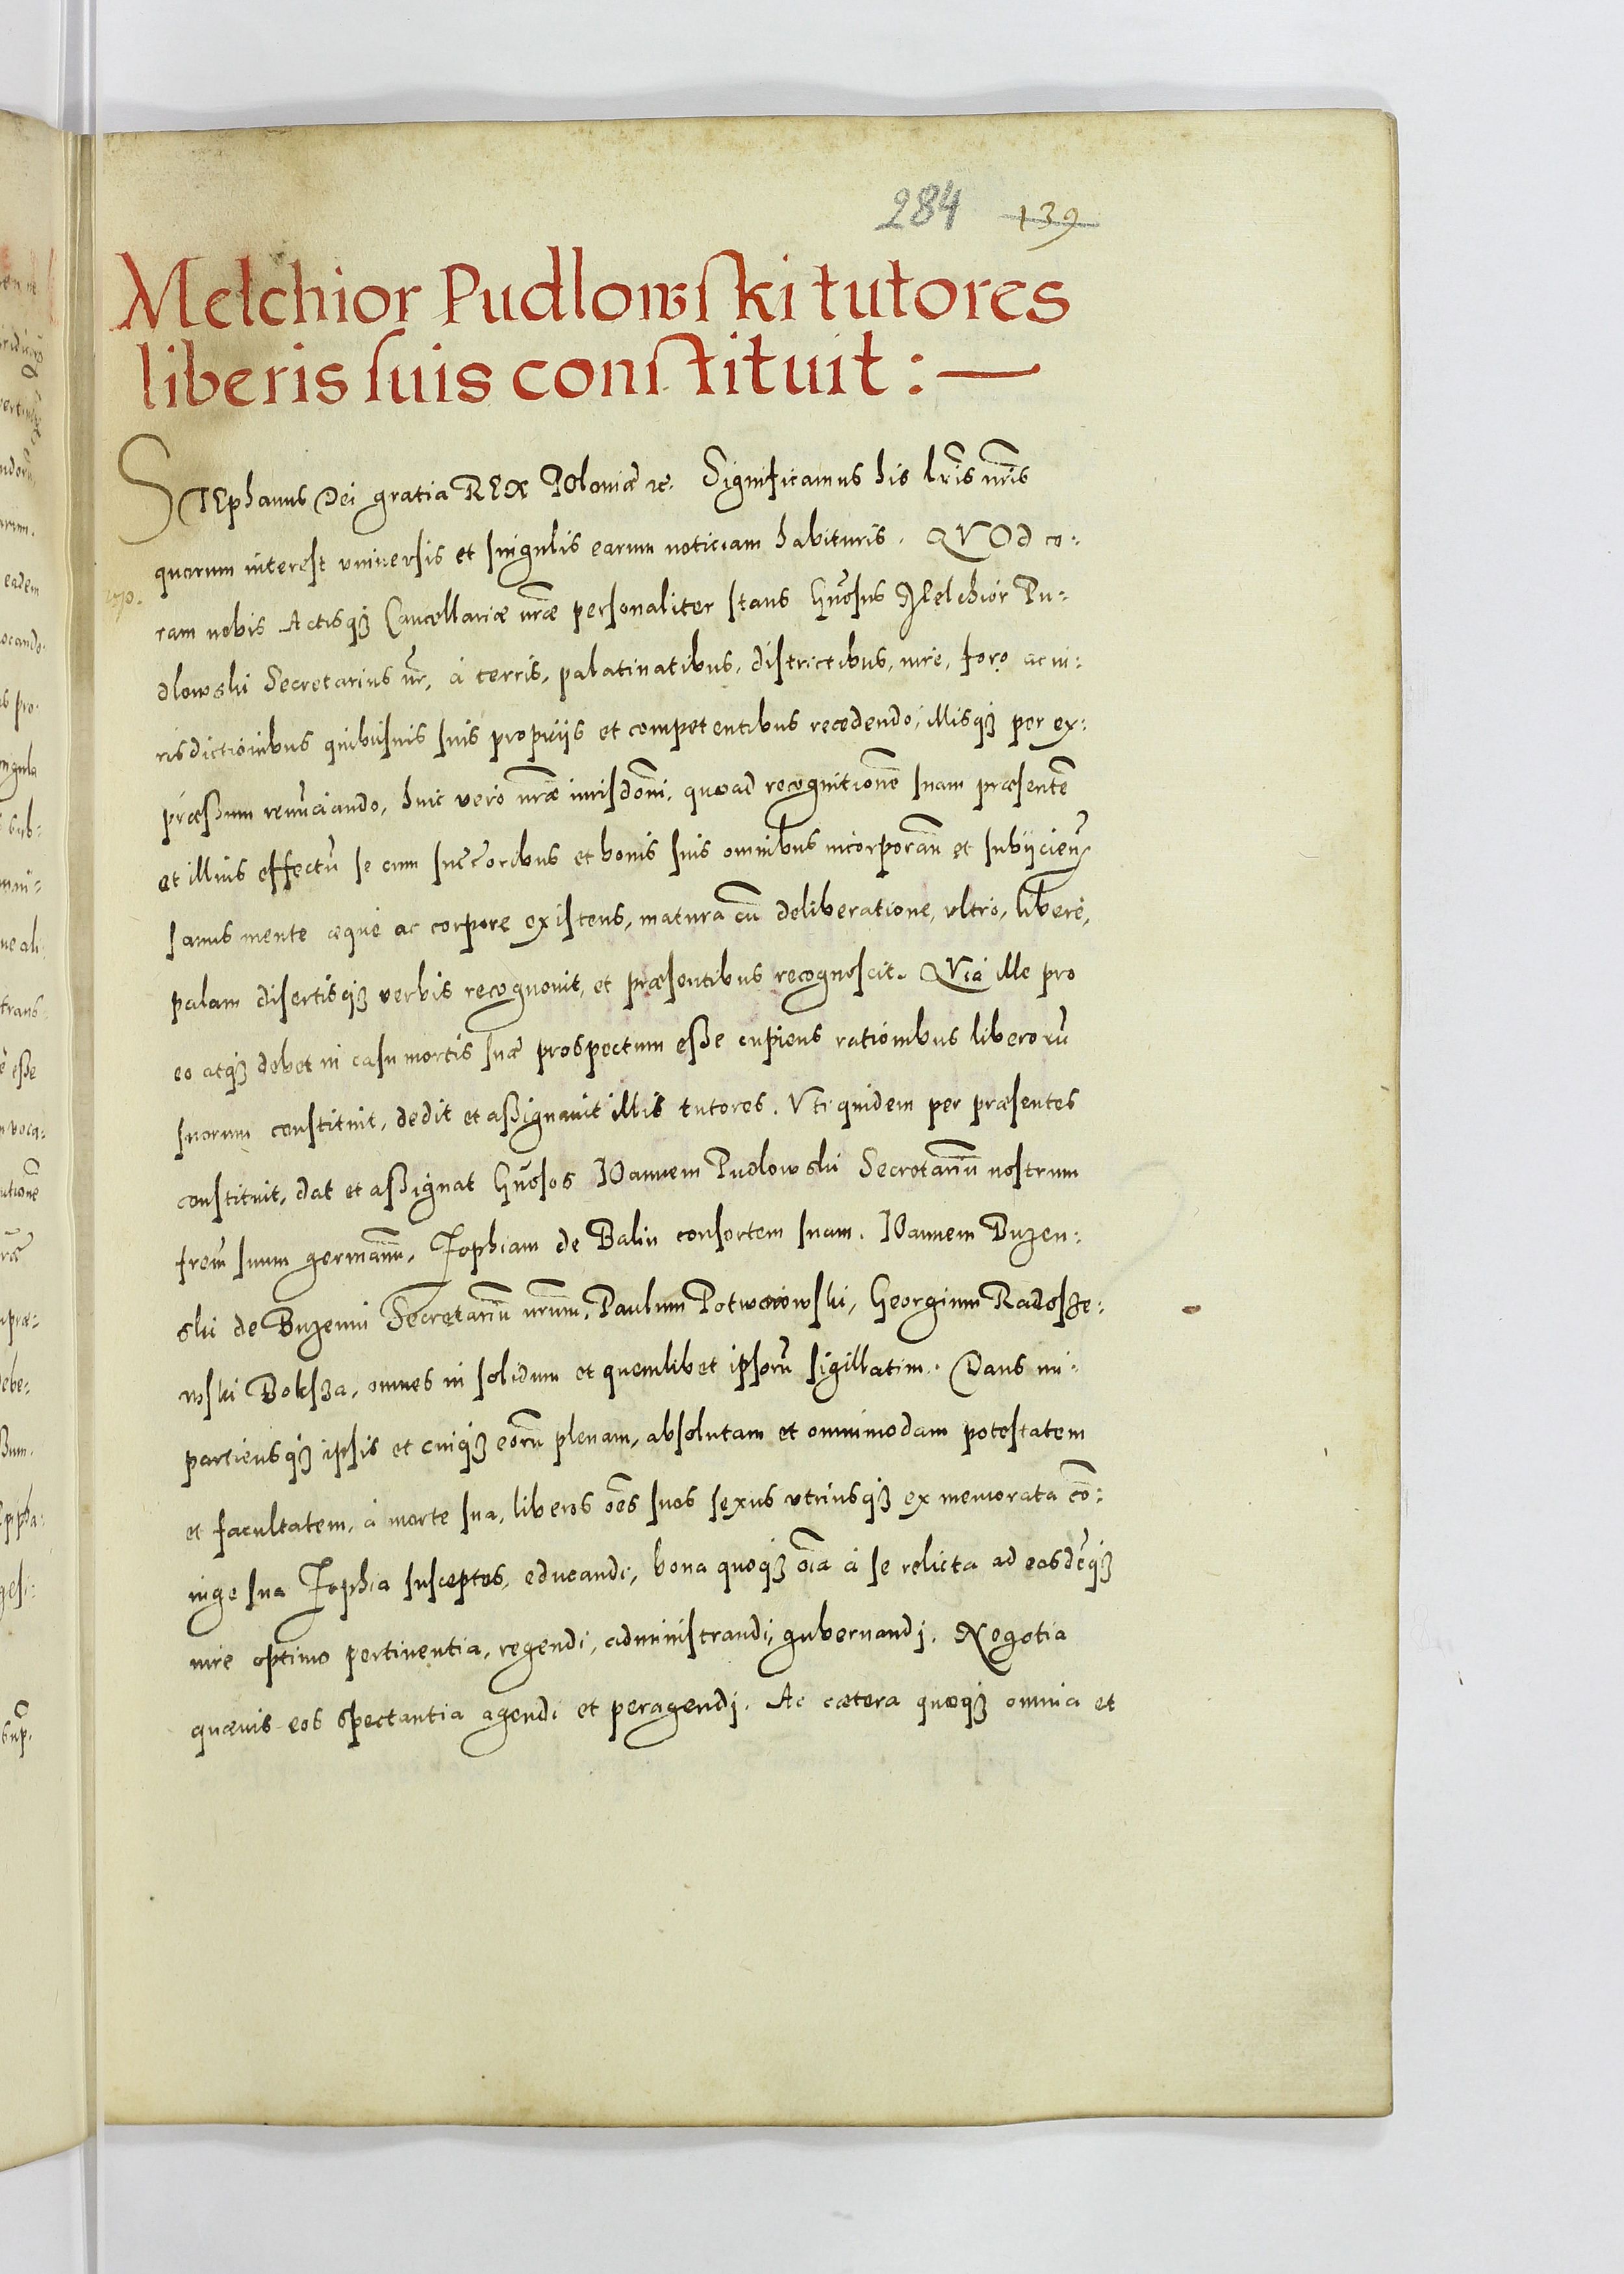 284 139
Melchior Pudlowski tutores
liberis suis constituit: —
STEphanus Dei gratia REX POloniæ etc. Significamus his lris nris
quorum interest vniuersis et singulis earum noticiam habituris. QVOd co:
ram nobis Actisq3 Cancellariæ nræ personaliter stans Gnosus MElchior Pu:
dlowski Secretarius nr, à terris, palatinatibus, districtibus, iure, foro ac iu:
risdictionibus quibusuis suis proprijs et competentibus recedendo, illisq3 per ex:
præssum renūciando, huic vero nræ iurisdoni, quoad recognitionē suam præsentē
et illius effectū se cum succoribus et bonis suis omnibus incorporan et subijcien
sanus mente æque ac corpore existens, matura cū deliberatione, vltro, liberè,
palam disertisq3 verbis recognouit, et præsentibus recognoscit. QVia ille pro
eo atq3 debet in casu mortis suæ prospectum esse cupiens rationibus liberorū
suorum constituit, dedit et assignauit illis tutores. Vti quidem per præsentes
constituit, dat et assignat Gnosos IOannem Pudlowski Secretariū nostrum
frem suum germanū, Zophiam de Balin consortem suam. IOannem Buzen:
ski de Buzenin Secretariū nrum, Paulum Potworowski, Georgium Radosze:
wski Boksza, omnes in solidum et quemlibet ipsorū sigillatim. Dans im:
partiensq3 ipsis et cuiq3 eorū plenam, absolutam et omnimodam potestatem
et facultatem, à morte sua, liberos oēs suos sexus vtriusq3 ex memorata cō:
iuge sua Zophia susceptos, educandi, bona quoq3 oīa à se relicta ad eosdēq3
iure optimo pertinentia, regendi, administrandi, gubernandj. Negotia
quæuis eos spectantia agendi et peragendj. Ac cætera quoq3 omnia et